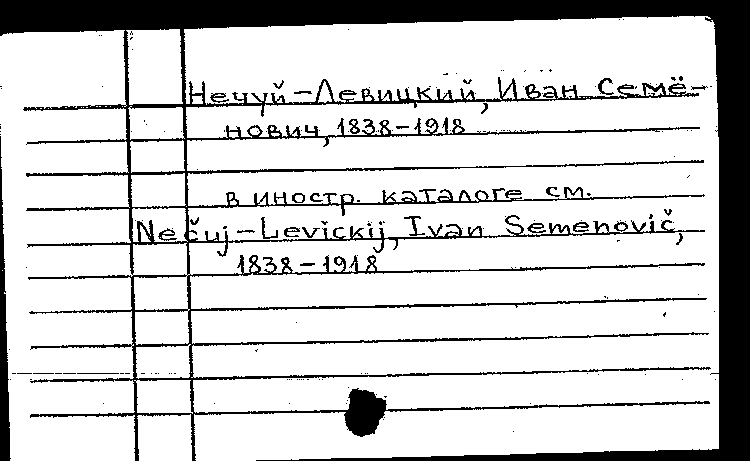 Нечуй-Левицкий, Иван Семё-
нович, 1838-1918
в иностр. каталоге см.
Nečuj-Levickij, Ivan Semenovič,
1838-1918